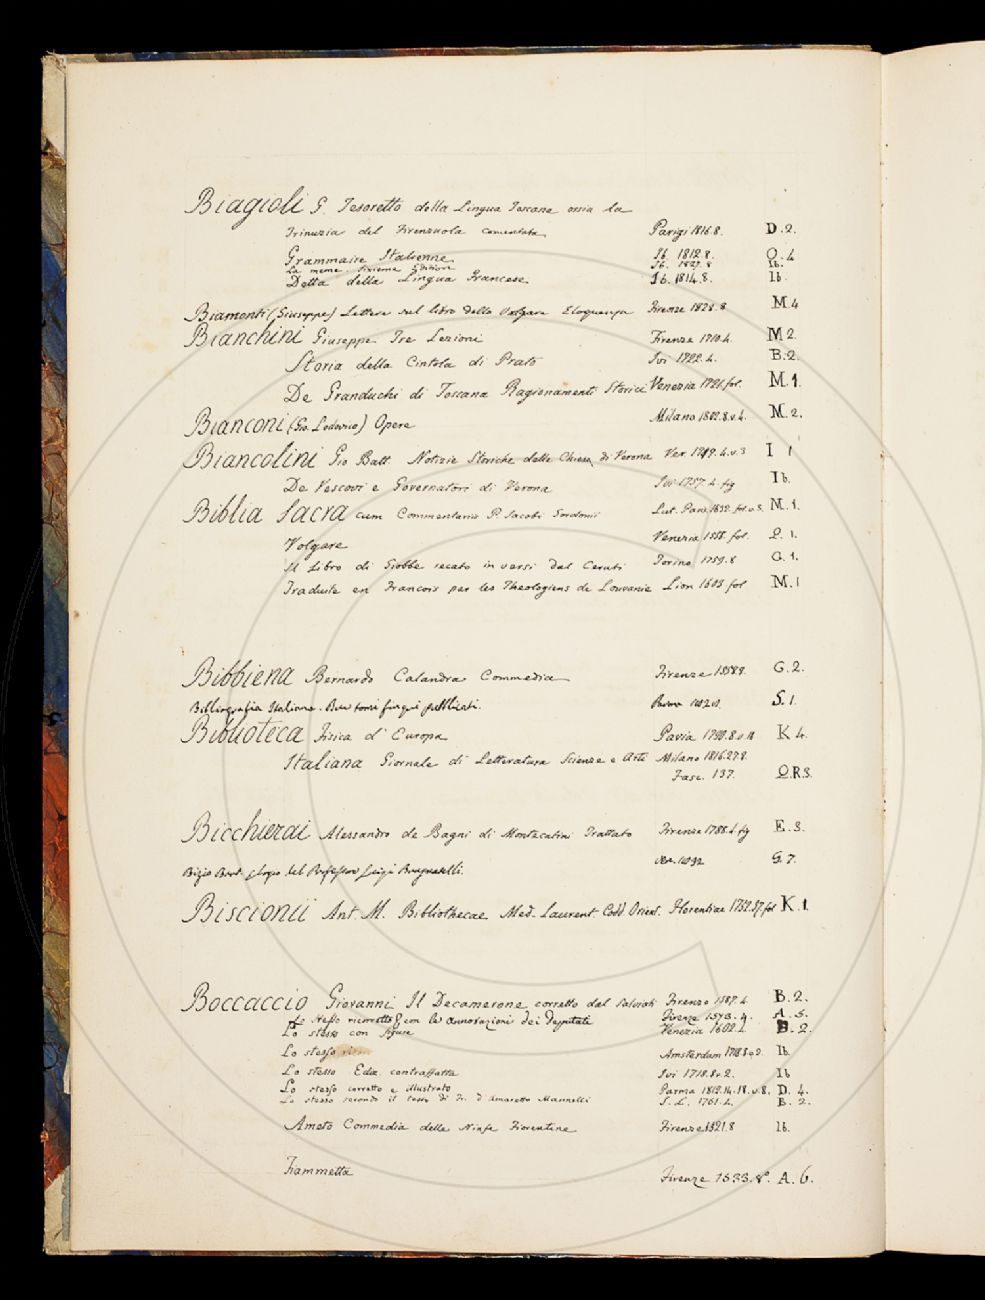 Biagioli G. Tesoretto della Lingua Toscana ossia la
Trinuzia del Firenzuola comentata Parigi 1816.8. D.2.
Grammaire Italienne Ib. 1812.8. Q.4
La meme sixieme Edition Ib. 1827.8 Ib.
Detta della Lingua Francese Ib. 1814.8. Ib.
Biamonti (Giuseppe) Lettera sul libro della Volgare Eloquenza Firenze 1828.8 M.4
Bianchini Giuseppe Tre Lezioni Firenze 1710.4. M 2.
Storia della Cintola di Prato Ivi 1722.4. B.2.
De Granduchi di Toscana Ragionamenti Storici Venezia 1721.fol. M.1.
Bianconi (Gio. Lodovico) Opere Milano 1802.8.v.4. M.2.
Biancolini Gio Batt. Notizie Storiche delle Chiese di Verona Ver. 1749.4.v.3 I 1
De Vescovi e Governatori di Verona Ivi 1757.4.fig Ib.
Biblia Sacra cum Commentariis P. Jacobi Gordonii Lut. Paris. 1632.fol.v.3. M.1.
Volgare Venezia 1558.fol. Q.1.
Il Libro di Giobbe recato in versi dal Ceruti Torino 1759.8 G.1.
Traduite en Francois par les Theologiens de Louvanie Lion 1603 fol M.1
Bibbiena Bernardo Calandra Commedia Firenze 1558.8. G.2.
Bibliografia Italiana. Due tomi finqui pubblicati. S.1.
Biblioteca Fisica d'Europa Pavia 1790.8.v. K 4.
Italiana Giornale di Letteratura Scienze e Arti Milano 1816.27.8.
Fasc. 137. Q.R.S.
Bicchierai Alessandro de Bagni di Montecatini Trattato Firenze 1788.4.fig E.3.
Bizio Bart. elogio del Professore Luigi Brugnatelli. Ven. 1832 G.7.
Biscionii Ant. M. Bibliothecae Med. Laurent. Codd Orient. Florentiae 1752.57.fol K.1.
Boccaccio Giovanni Il Decamerone corretto dal Salviati Firenze 1587.4. B.2.
Lo stesso ricorretto, e con le annotazioni dei Deputati Firenze 1573.4. A.5.
Lo stesso con figure Venezia 1602.4. B.2.
Lo stesso Amsterdam 1718.8.v.2. Ib.
Lo stesso Ediz. contraffatta Ivi 1718.8.v.2. Ib
Lo stesso corretto e illustrato Parma 1812.14.18.v.8. D.4.
Lo stesso secondo il testo di Fr. d Amaretto Mannelli S.L. 1761.4. B.2.
Ameto Commedia delle Ninfe Fiorentine Firenze 1521.8 Ib.
Fiammetta Firenze 1533.8°. A.6.